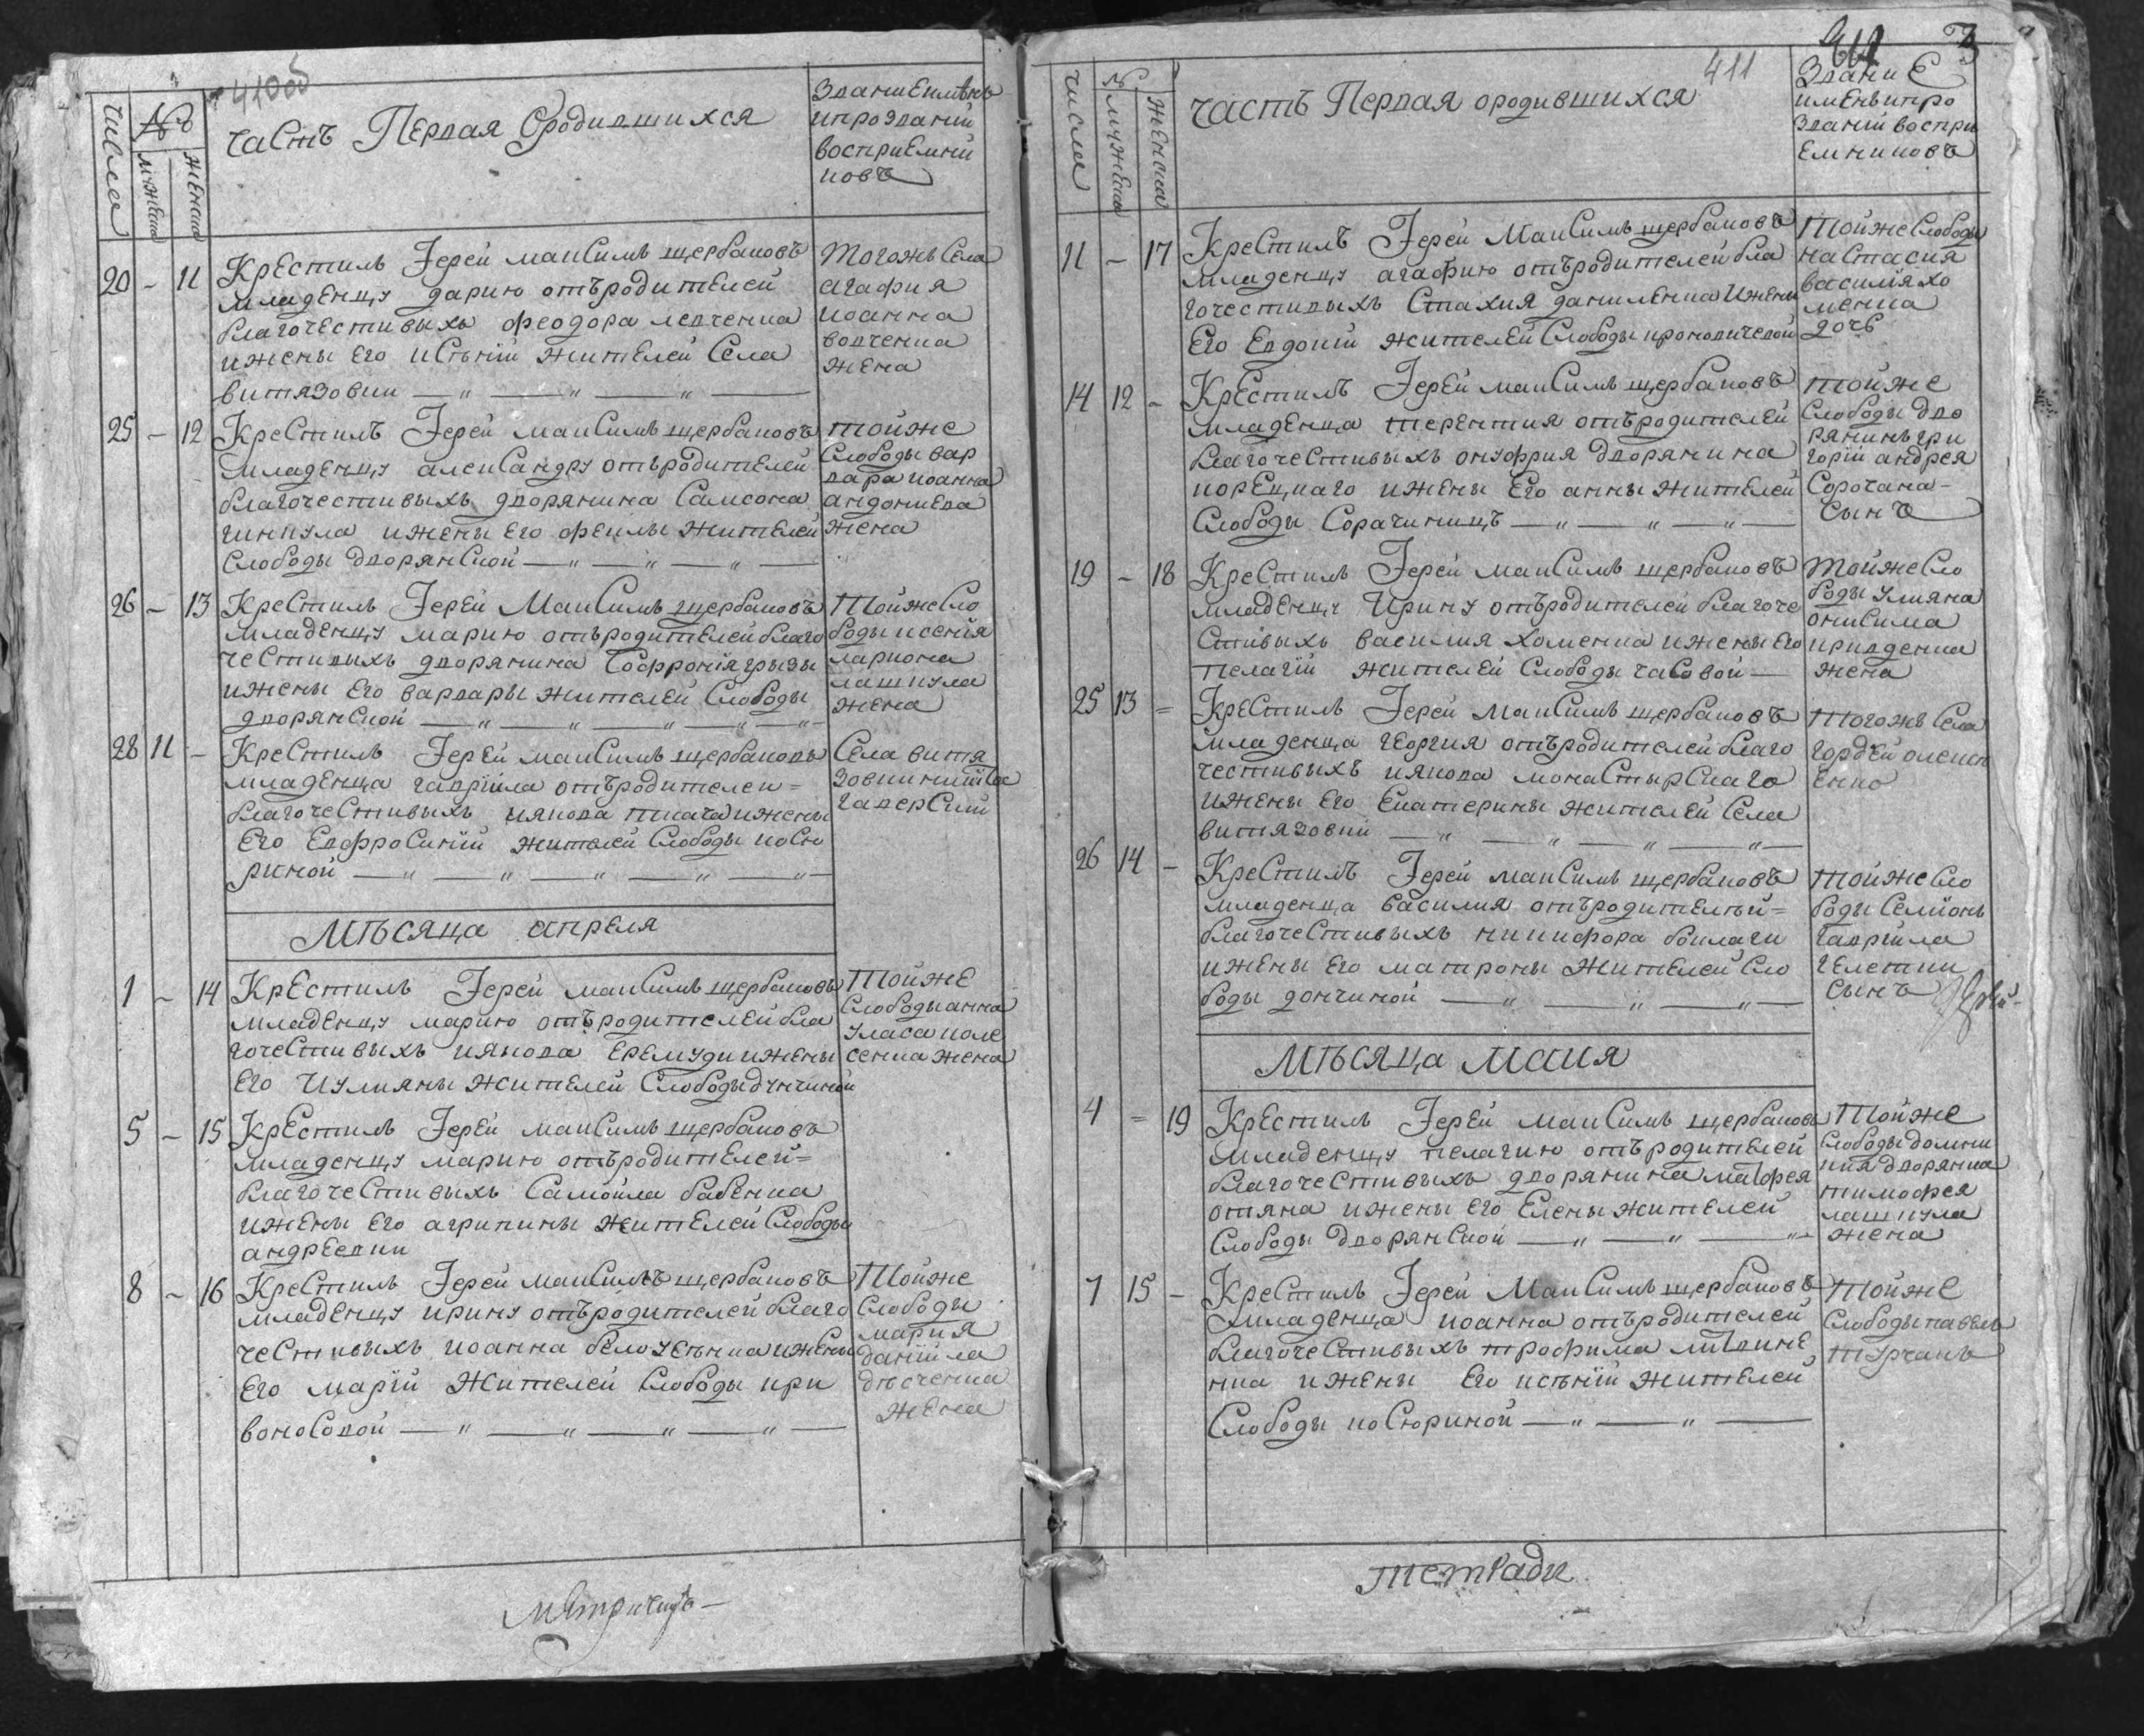 410об
числа
№
мужеска
женска
часть Первая Ородившихся
Звание имянъ
ипрозваний
восприемни
ковъ
20 - 11 Крестилъ Іерей максимъ щербаковъ
младенцу дарию отъродителей
благочестивыхъ феодора левченка
ижены Его ксѣніи жителей Села
витязовки — „ — „ — „ —
Тогожъ Села
агафия
иоанна
вовченка
жена
25 - 12 Крестилъ Іерей максимъ щербаковъ
младенцу александру отъродителей
благочестивыхъ дворянина Самсона
гинкула ижены Его феклы жителей
Слободы дворянской — „ — „ — „ —
тойже
Слободы вар
вара иоанна
андониева
жена
26 - 13 Крестилъ Іерей Максимъ щербаковъ
младенцу марию отъродителей благо
честивыхъ дворянина Софронія грызы
ижены Его варвары жителей Слободы
дворянской — „ — „ — „ — „ — „ -
Тойжесло
боды ксенія
лариона
лашкула
жена
28 11 - Крестилъ Іерей максимъ щербаковъ
младенца гавріила отъродителей =
благочестивыхъ иякова ткача ижены
Его Евфросиніи жителей Слободы косю
риной — „ — „ — „ — „ — „ -
Села витя
зовки никита
гаверский
мѣсяца апреля
1 - 14 Крестилъ Іерей максимъ щербаковъ
младенцу марию отъродителей бла
гочестивыхъ иякова Еремуди ижены
Его Иулияны жителей Слободы дончиной
Тойже
Слободы анна
уласа коле
сенка жена
5 - 15 Крестилъ Іерей максимъ щербаковъ
младенцу марию отъродителей =
благочестивыхъ Самойла бабенка
ижены Его агрипины жителей Слободы
андреевки
8 - 16 Крестилъ Іерей максимъ щербаковъ
младенцу ирину отъродителей благо
честивыхъ иоанна белоусенка ижены
Его маріи жителей Слободы кри
воносовой — „ — „ — „ — „ —
Тойже
Слободы
мария
данійла
дѣсченка
жена
411
3
числа
№
мужеска
женска
часть Первая ородившихся
Звание
именъ ипро
Званий воспри
емниковъ
11 - 17 Крестилъ Іерей Максимъ щербаковъ
младенцу агафию отъродителей бла
гочестивыхъ Стахия даниленка Ижены
Его Евдокіи жителей Слободы проковичевой
Тойже Слободы
настасия
василия хо
менка
дочь
14 12 - Крестилъ Іерей максимъ щербаковъ
младенца терентия отъродителей
благочестивыхъ онуфрия дворянина
корецкаго ижены Его анны жителей
Слободы Сорачининцъ — „ — „ — „ —
тойже
Слободы дво
рянинъ гри
горій андрея
Сорочана -
сынъ
19 - 18 Крестилъ Іерей максимъ щербаковъ
младенцу Ирину отъродителей благоче
стивыхъ василия хоменка ижены Его
пелагіи жителей Слободы часовой —
тойже сло
боды улияна
онисима
кривденка
жена
25 13 = Крестилъ Іерей максимъ щербаковъ
младенца георгия отъродителей благо
честивыхъ иякова монастырскаго
ижены Его Екатерины жителей Села
витязовки — „ — „ — „ — „ —
Тогожъ Села
гордѣй олекси
Енко
26 14 - Крестилъ Іерей максимъ щербаковъ
младенца василия отъродителей =
благочестивыхъ никифора боклаги
ижены Его матроны жителей Сло
боды дончиной — „ — „ — „ —
Тойже Сло
боды Семіонъ
гавриила
гелетки
сынъ
мѣсяца маия
4 = 19 Крестилъ Іерей максимъ щербаковъ
младенцу пелагию отъродителей
благочестивыхъ дворянина матфея
отяна ижены Его Елены жителей
Слободы дворянской — „ — „ — „ -
Тойже
Слободы домни
кия дворянка
тимофея
лашкула
жена
7 15 - Крестилъ Іерей Максимъ щербаковъ
младенца иоанна отъродителей
благочестивыхъ трофима литвине
нка ижены Его ксѣніи жителей
Слободы косюриной — „ — „ —
Тойже
Слободы павелъ
турчанъ
Метрической
тетради